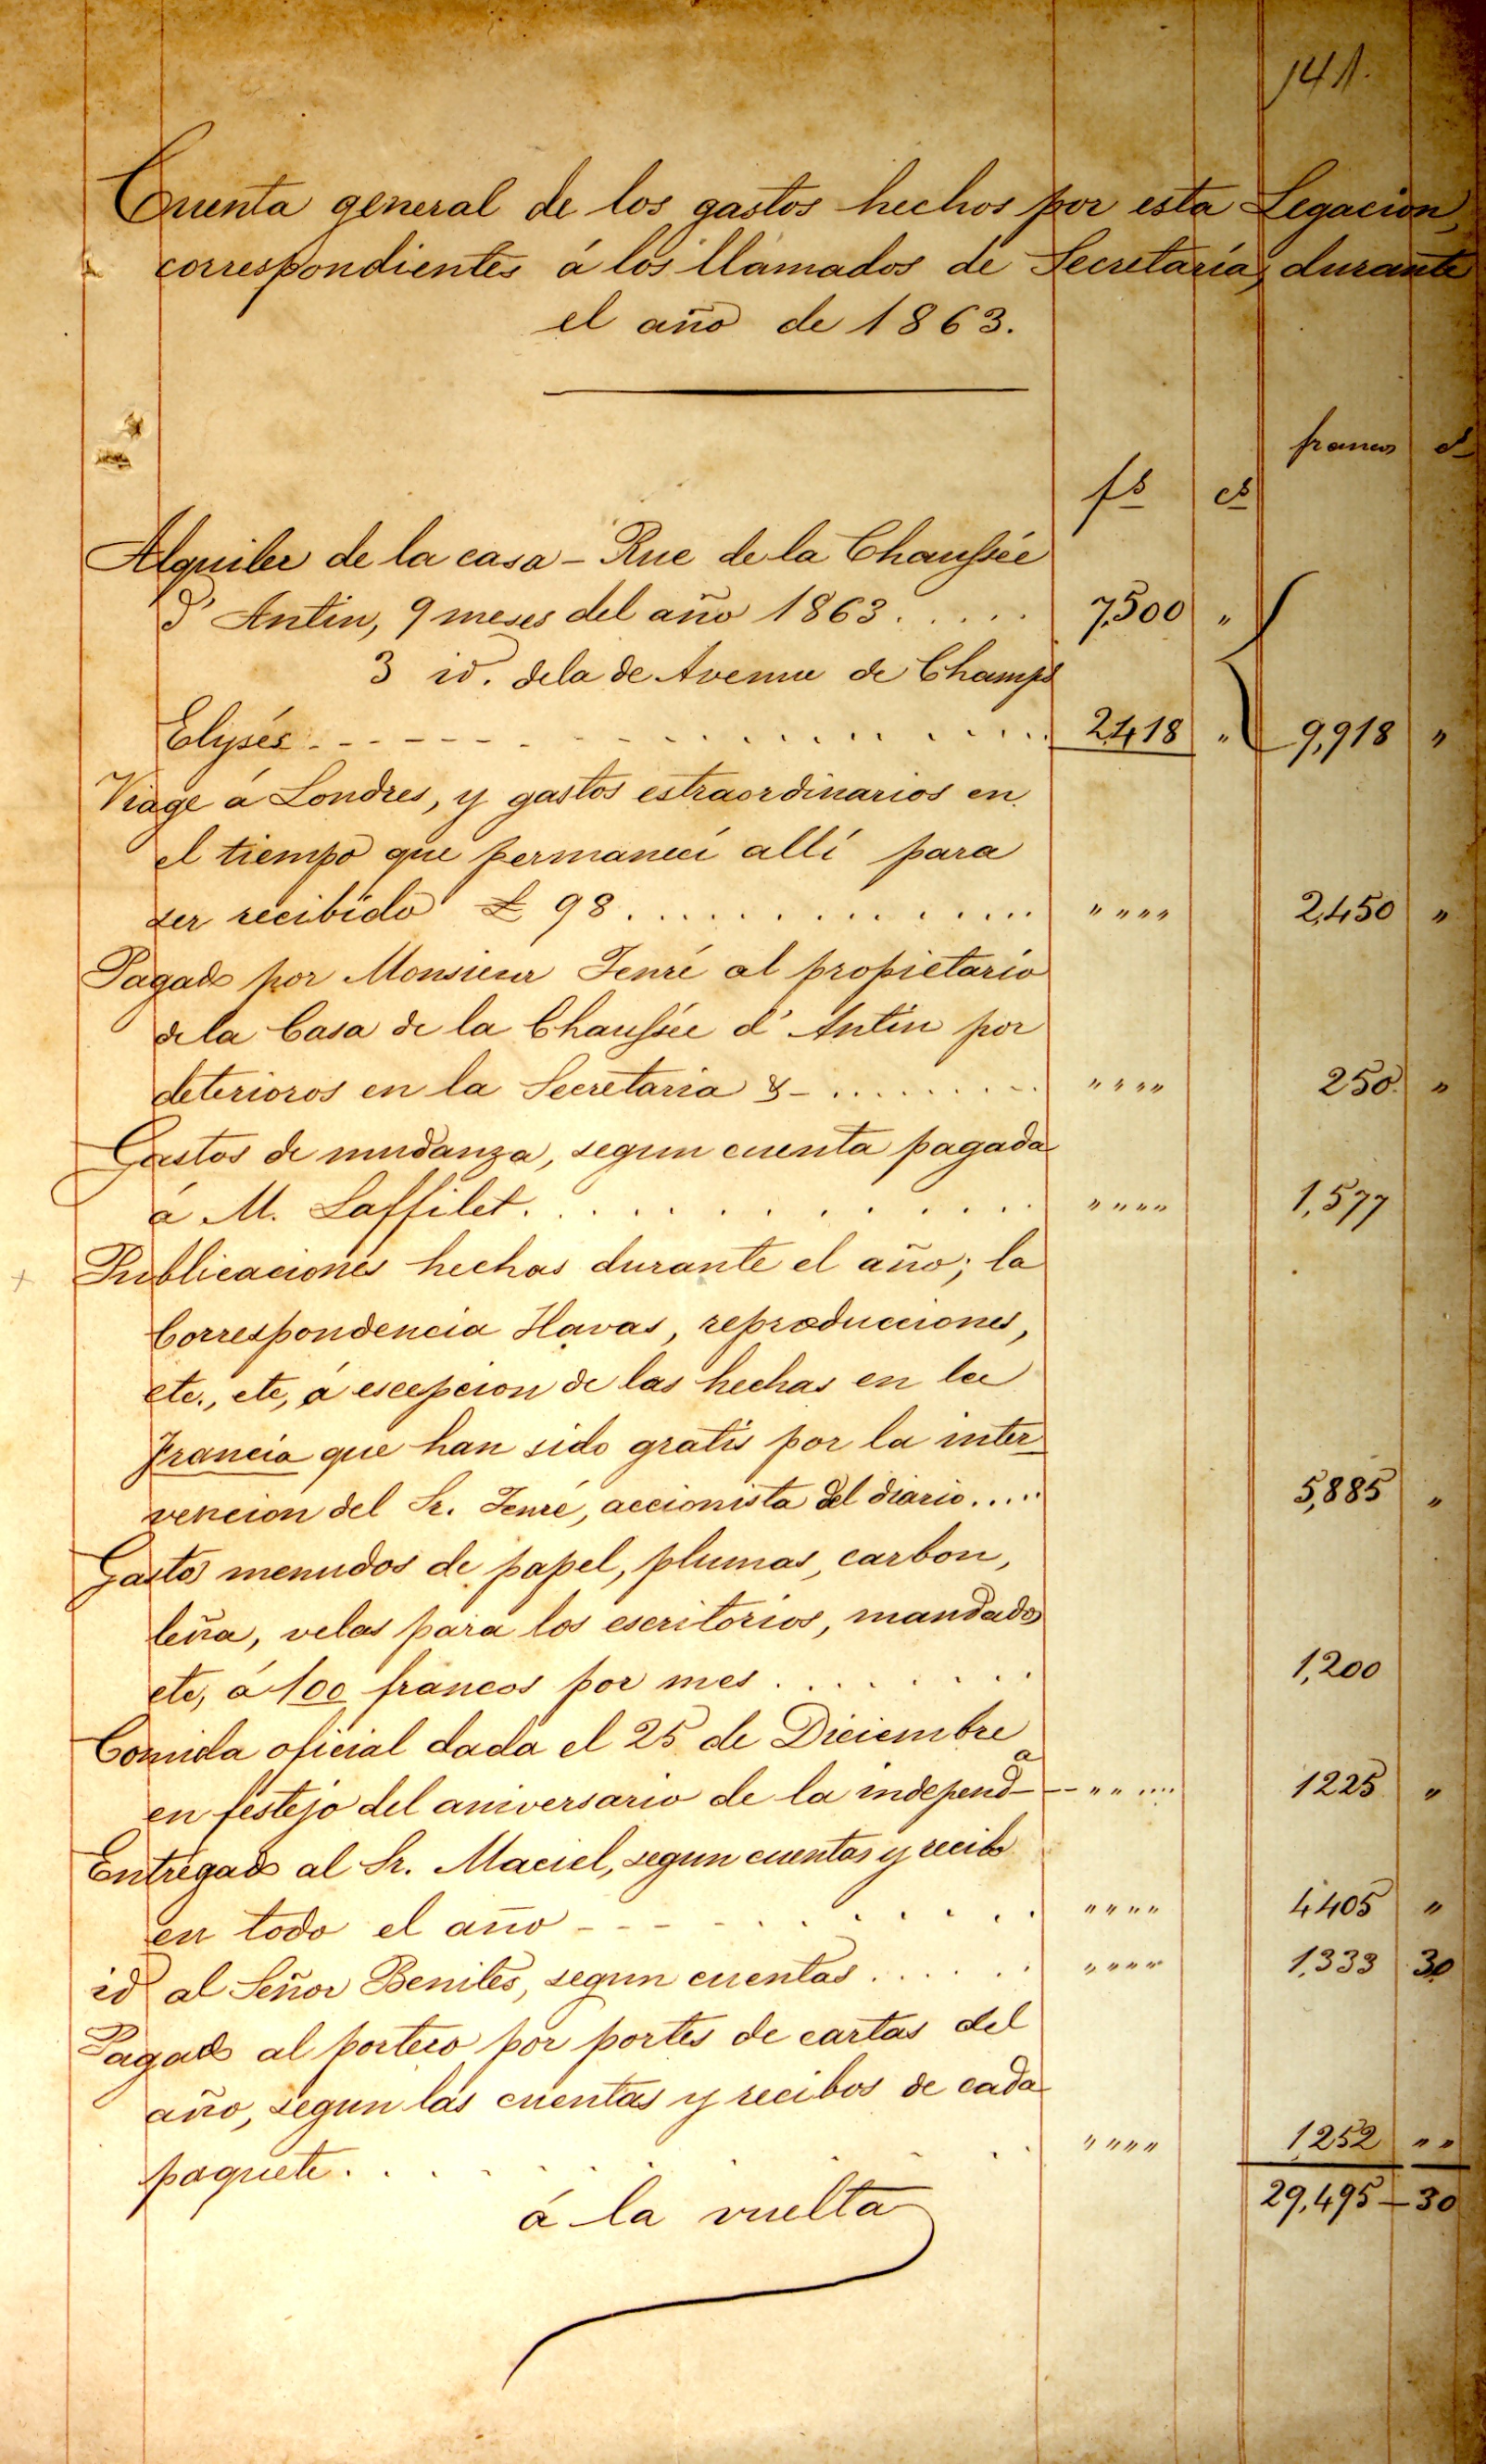 141.
Cuenta general de los gastos hechos por esta Legacion,
correspondientes á los llamados de Secretaría, durante
el año de 1863.
francos cs
fs cs
Alquiler de la casa - Rue de la Chaussée
d' Antin, 9 meses del año 1863 . . . . . 7,500 "
3 id. de la de Avenue de Champs
Elysés - - - - - . . . . . . . . . 2,418 " 9,918 "
Viage á Londres, y gastos estraordinarios en
el tiempo que permanecí allí para
ser recibido £ 98 . . . . . . . . . . . . " " " " 2,450 "
Pagado por Monsieur Tenré al propietario
de la Casa de la Chaussée d' Antin por
deterioros en la Secretaria &- . . . . . . . . " " " " 250. "
Gastos de mudanza, segun cuenta pagada
á M. Laffilet . . . . . . . . . . . . " " " " 1,577
Publicaciones hechas durante el año; la
Correspondencia Havas, reproducciones,
etc., etc, á escepcion de las hechas en la
Francia que han sido gratis por la inter
vencion del Sr. Tenré, accionista del diario ..... 5,885 "
Gastos menudos de papel, plumas, carbon,
leña, velas para los escritorios, mandados
etc, á 100 francos por mes . . . . . . . . 1,200
Comida oficial dada el 25 de Diciembre
en festejo del aniversario de la independa - " " .... 1225 "
Entregado al Sr. Maciel, segun cuentas y recibo
en todo el año - - - - . . . . . . . " " " " 4,405 "
id al Señor Benites, segun cuentas . . . . . . " " " " 1,333 30
Pagado al portero por portes de cartas del
año, segun las cuentas y recibos de cada
paquete . . . . . . . . . . " " " " 1,252 " "
29,495 - 30
á la vuelta